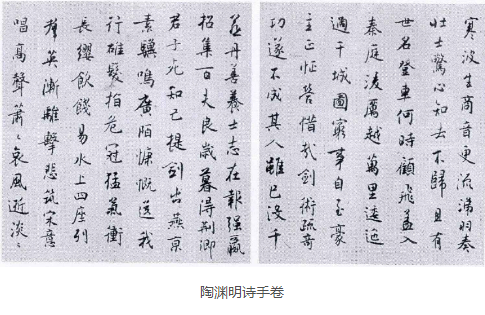 燕丹善養士志在報強嬴
招集百夫良歲暮得荊卿
君子死知己提劍出燕京
素驥鳴廣陌慷慨送我
行雄髮指危冠猛氣衝
長纓飲餞易水上四座列
群英漸離擊悲筑宋意
唱高聲蕭々哀風逝淡々
寒波生商音更流涕羽奏
壯士驚心知去不歸且有
世名登車何時顧飛蓋入
秦庭凌厲越萬里逶迤
過千城圖窮事自至豪
主正怔營惜哉劍術疏奇
功遂不成其人雖已沒千
陶渊明诗手卷